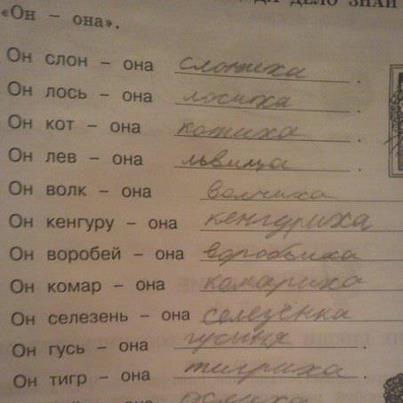 ДЕЛО ЗНАЙ
«Он – она».
Он слон – она слониха.
Он лось – она лосиха.
Он кот – она котиха.
Он лев – она львица.
Он волк – она волчиха
Он кенгуру – она кенгуриха
Он воробей – она воробьиха
Он комар – она комариха
Он селезень – она селезёнка
Он гусь – она гусыня.
Он тигр – она тигриха.